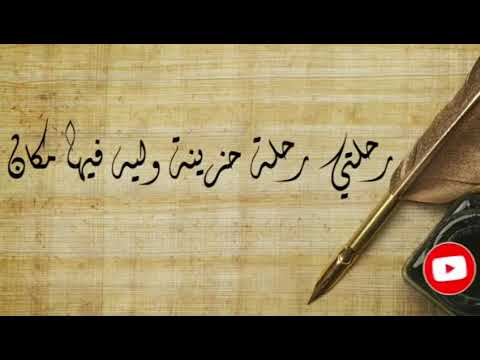 رحلتي رحلة حزينة وليه فيها مكان